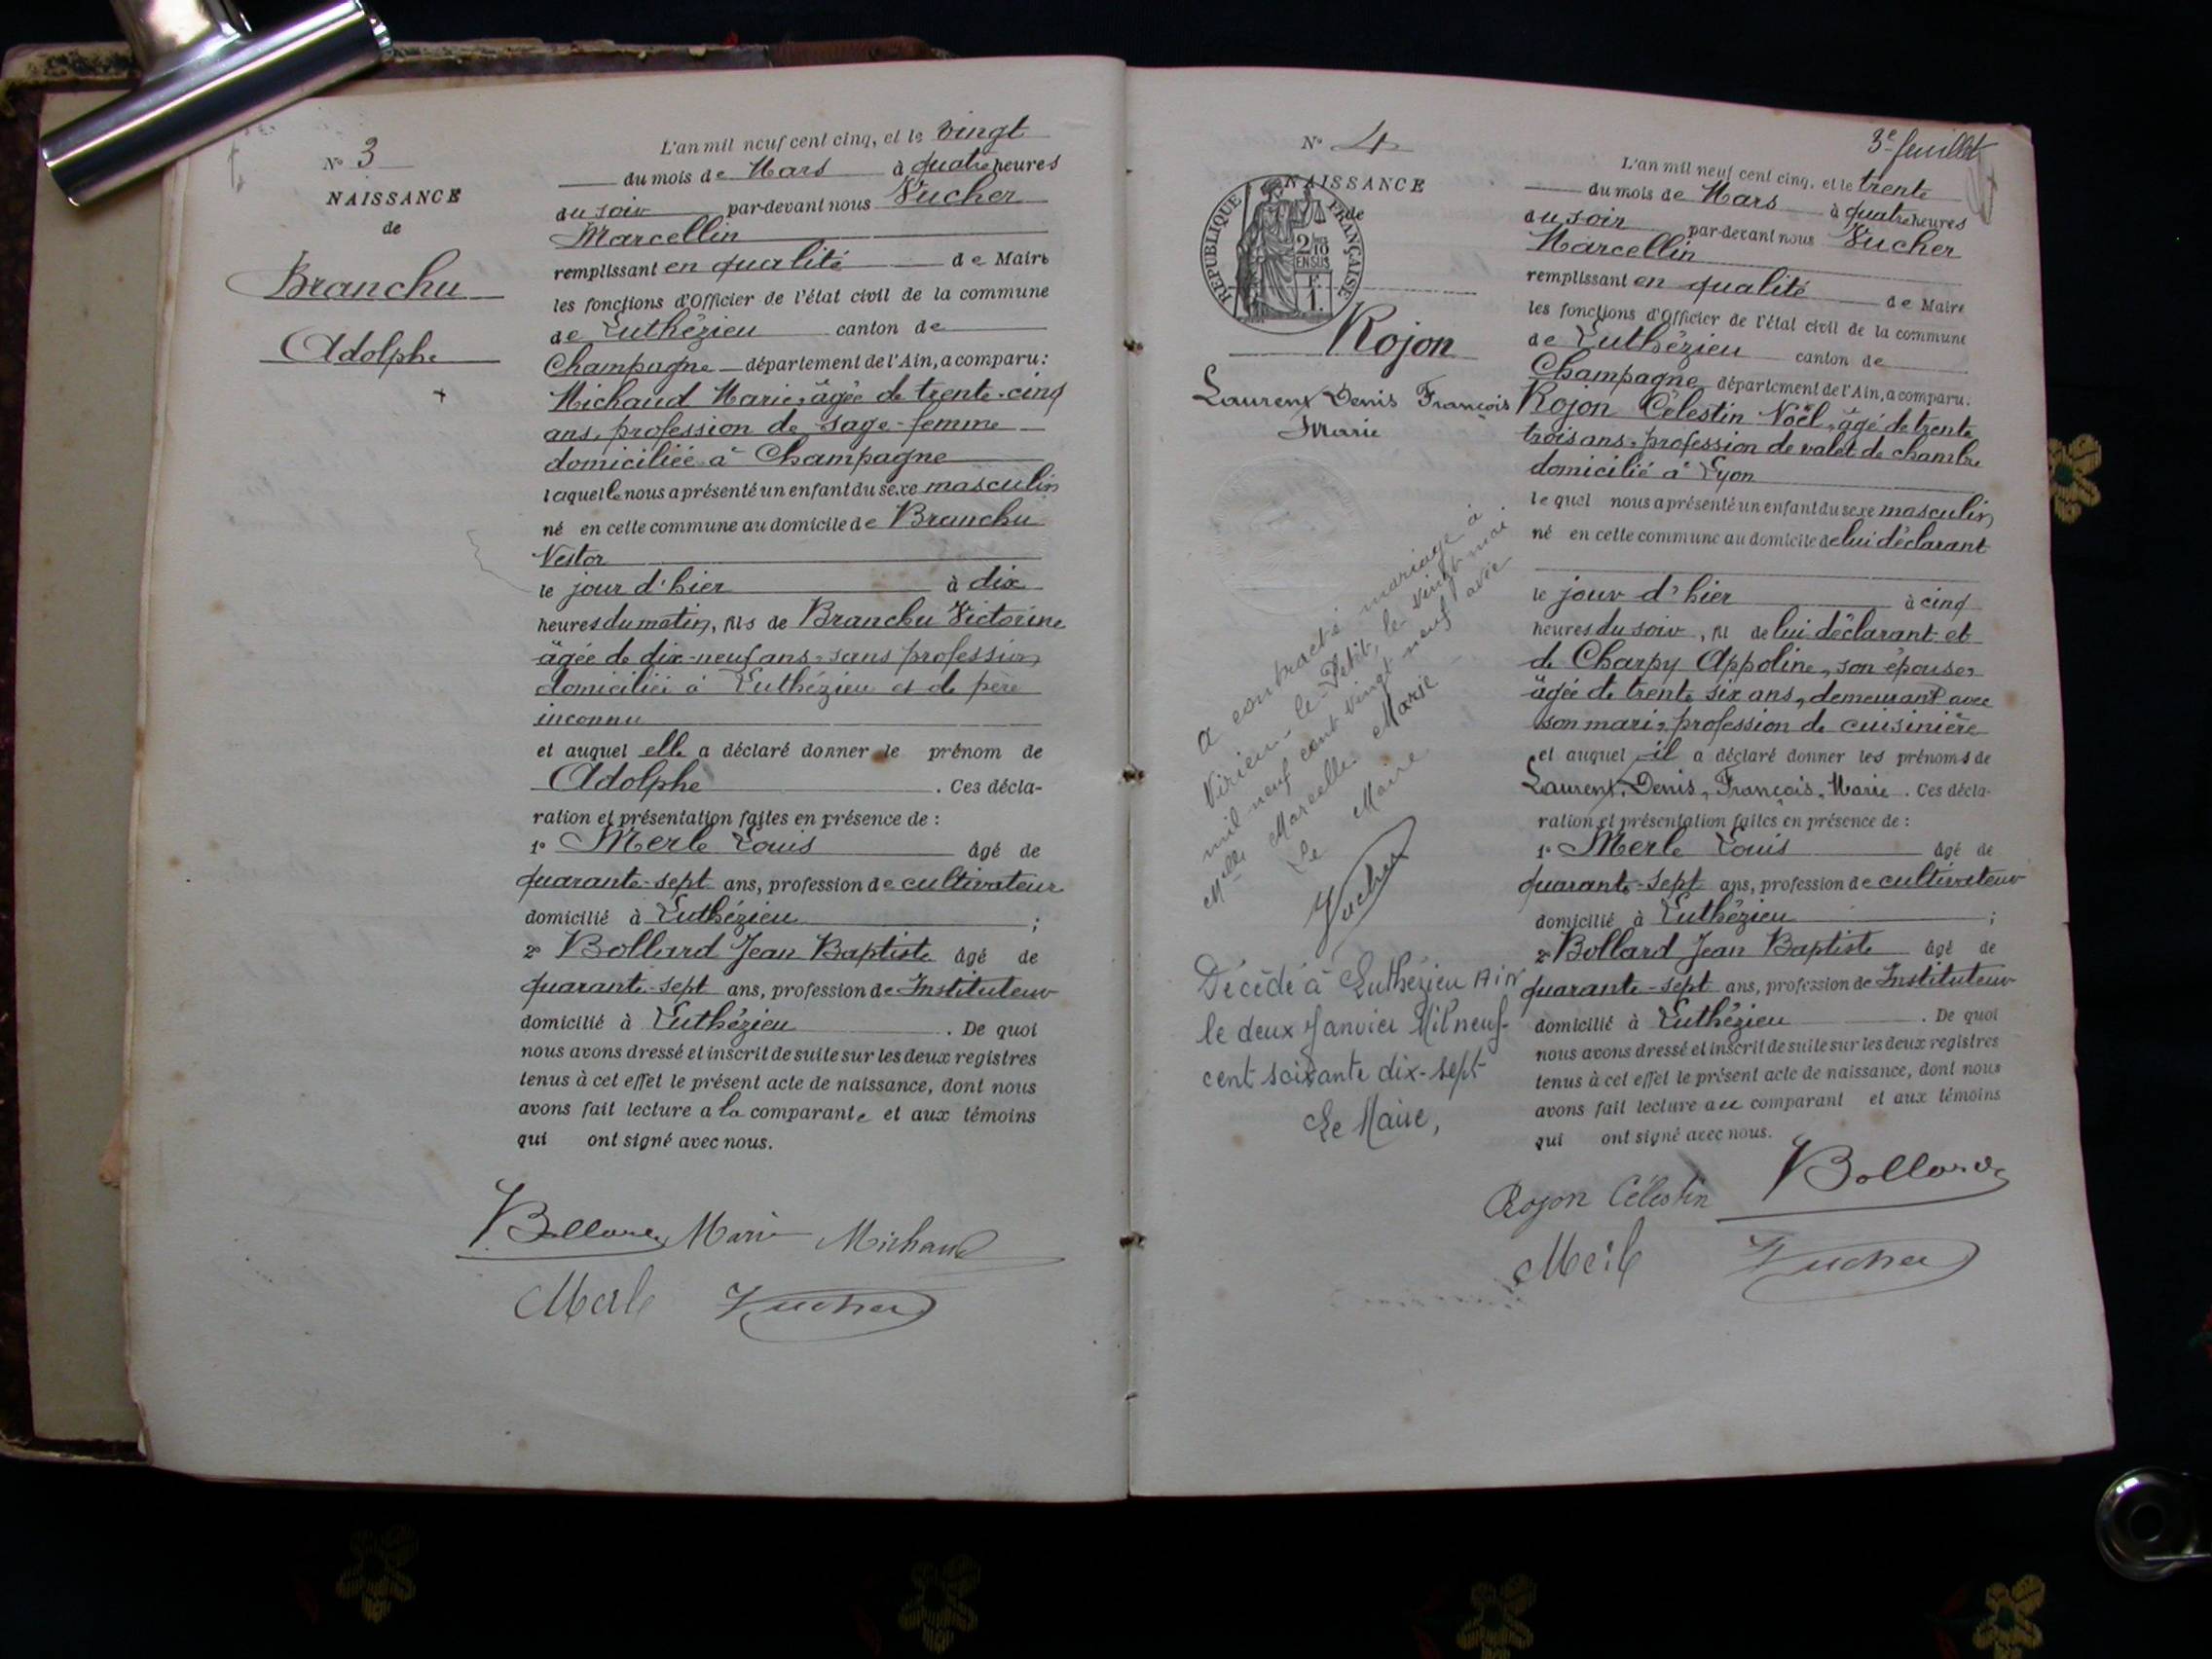 N° 3
NAISSANCE
de
Branchu
Adolphe
L'an mil neuf cent cinq, et le vingt
du mois de Mars à quatre heures
du soir par-devant nous Vucher
Marcellin
remplissant en qualité de Maire
les fonctions d'Officier de l'état civil de la commune
de Luthézieu canton de
Champagne département de l'Ain, a comparu:
Michaud Marie, âgée de trente-cinq
ans, profession de sage-femme
domiciliée à Champagne
laquelle nous a présenté un enfant du sexe masculin
né en cette commune au domicile de Branchu
Nestor
le jour d'hier à dix
heures du matin, fils de Branchu Victorine
âgée de dix-neuf ans, sans profession
domiciliée à Luthézieu et de père
inconnu
et auquel elle a déclaré donner le prénom de
Adolphe. Ces décla-
ration et présentation faites en présence de :
1° Merle Louis âgé de
quarante-sept ans, profession de cultivateur
domicilié à Luthézieu ;
2° Bollard Jean Baptiste âgé de
quarante-sept ans, profession de Instituteur
domicilié à Luthézieu. De quoi
nous avons dressé et inscrit de suite sur les deux registres
tenus à cet effet le présent acte de naissance, dont nous
avons fait lecture a la comparante et aux témoins
qui ont signé avec nous.
Bollard Marie Michaud
Merle Vucher
3e feuillet
N° 4
NAISSANCE
de
REPUBLIQUE FRANÇAISE
2/10
EN SUS
F.
1.
Rojon
Laurent Denis François
Marie
A contracté mariage à
Virieu-le-Petit, le vingt mai
mil neuf cent vingt neuf avec
Melle Marcelle Marie
Le Maire
Vucher
Décédé à Luthézieu Ain
le deux Janvier Mil neuf-
cent soixante dix-sept
Le Maire,
L'an mil neuf cent cinq, et le trente
du mois de Mars à quatre heures
du soir par-devant nous Vucher
Marcellin
remplissant en qualité de Maire
les fonctions d'Officier de l'état civil de la commune
de Luthézieu canton de
Champagne département de l'Ain, a comparu.
Rojon Célestin Noël, âgé de trente
trois ans, profession de valet de chambre
domicilié à Lyon
lequel nous a présenté un enfant du sexe masculin
né en cette commune au domicile de lui déclarant
le jour d'hier à cinq
heures du soir, fil de lui déclarant et
de Charpy Appoline, son épouse,
âgée de trente six ans, demeurant avec
son mari, profession de cuisinière
et auquel il a déclaré donner les prénoms de
Laurent, Denis, François, Marie. Ces décla-
ration et présentation faites en présence de :
1° Merle Louis âgé de
quarante-sept ans, profession de cultivateur
domicilié à Luthézieu ;
2° Bollard Jean Baptiste âgé de
quarante-sept ans, profession de Instituteur
domicilié à Luthézieu. De quoi
nous avons dressé et inscrit de suite sur les deux registres
tenus à cet effet le présent acte de naissance, dont nous
avons fait lecture au comparant et aux témoins
qui ont signé avec nous.
Rojon Célestin Bollard
Merle Vucher